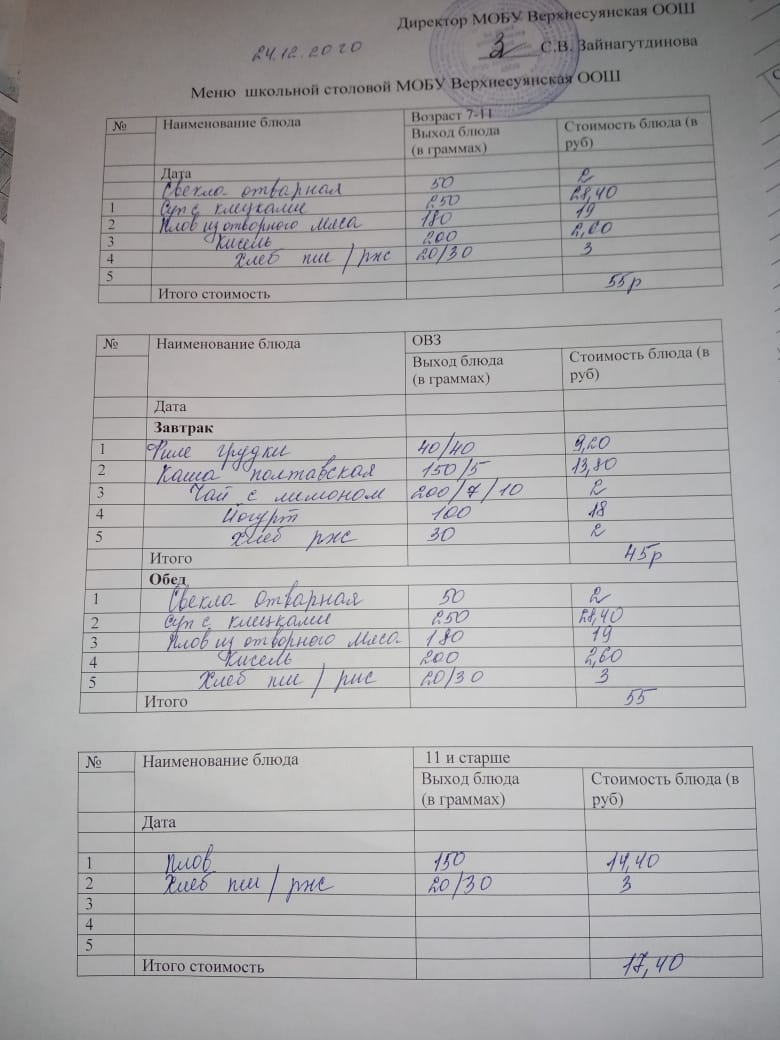 Директор МОБУ Верхнесуянская ООШ
24.12.2020 С.В. Зайнагутдинова
Меню школьной столовой МОБУ Верхнесуянская ООШ
№ Наименование блюда Возраст 7-11
Выход блюда (в граммах) Стоимость блюда (в руб)
Дата
Свекла отварная 50 2
1 Суп с клецками 250 28,40
2 Плов из отворного мяса 180 19
3 Кисель 200 2,60
4 Хлеб пш / рж 20/30 3
5
Итого стоимость 55р
№ Наименование блюда ОВЗ
Выход блюда (в граммах) Стоимость блюда (в руб)
Дата
Завтрак
1 Филе грудки 40/40 9,20
2 Каша полтавская 150/5 13,80
3 Чай с лимоном 200/7/10 2
4 Йогурт 100 18
5 Хлеб рж 30 2
Итого 45р
Обед
1 Свекла отварная 50 2
2 Суп с клецками 250 28,40
3 Плов из отворного мяса 180 19
4 Кисель 200 2,60
5 Хлеб пш / рж 20/30 3
Итого 55
№ Наименование блюда 11 и старше
Выход блюда (в граммах) Стоимость блюда (в руб)
Дата
1 Плов 150 14,40
2 Хлеб пш / рж 20/30 3
3
4
5
Итого стоимость 17,40